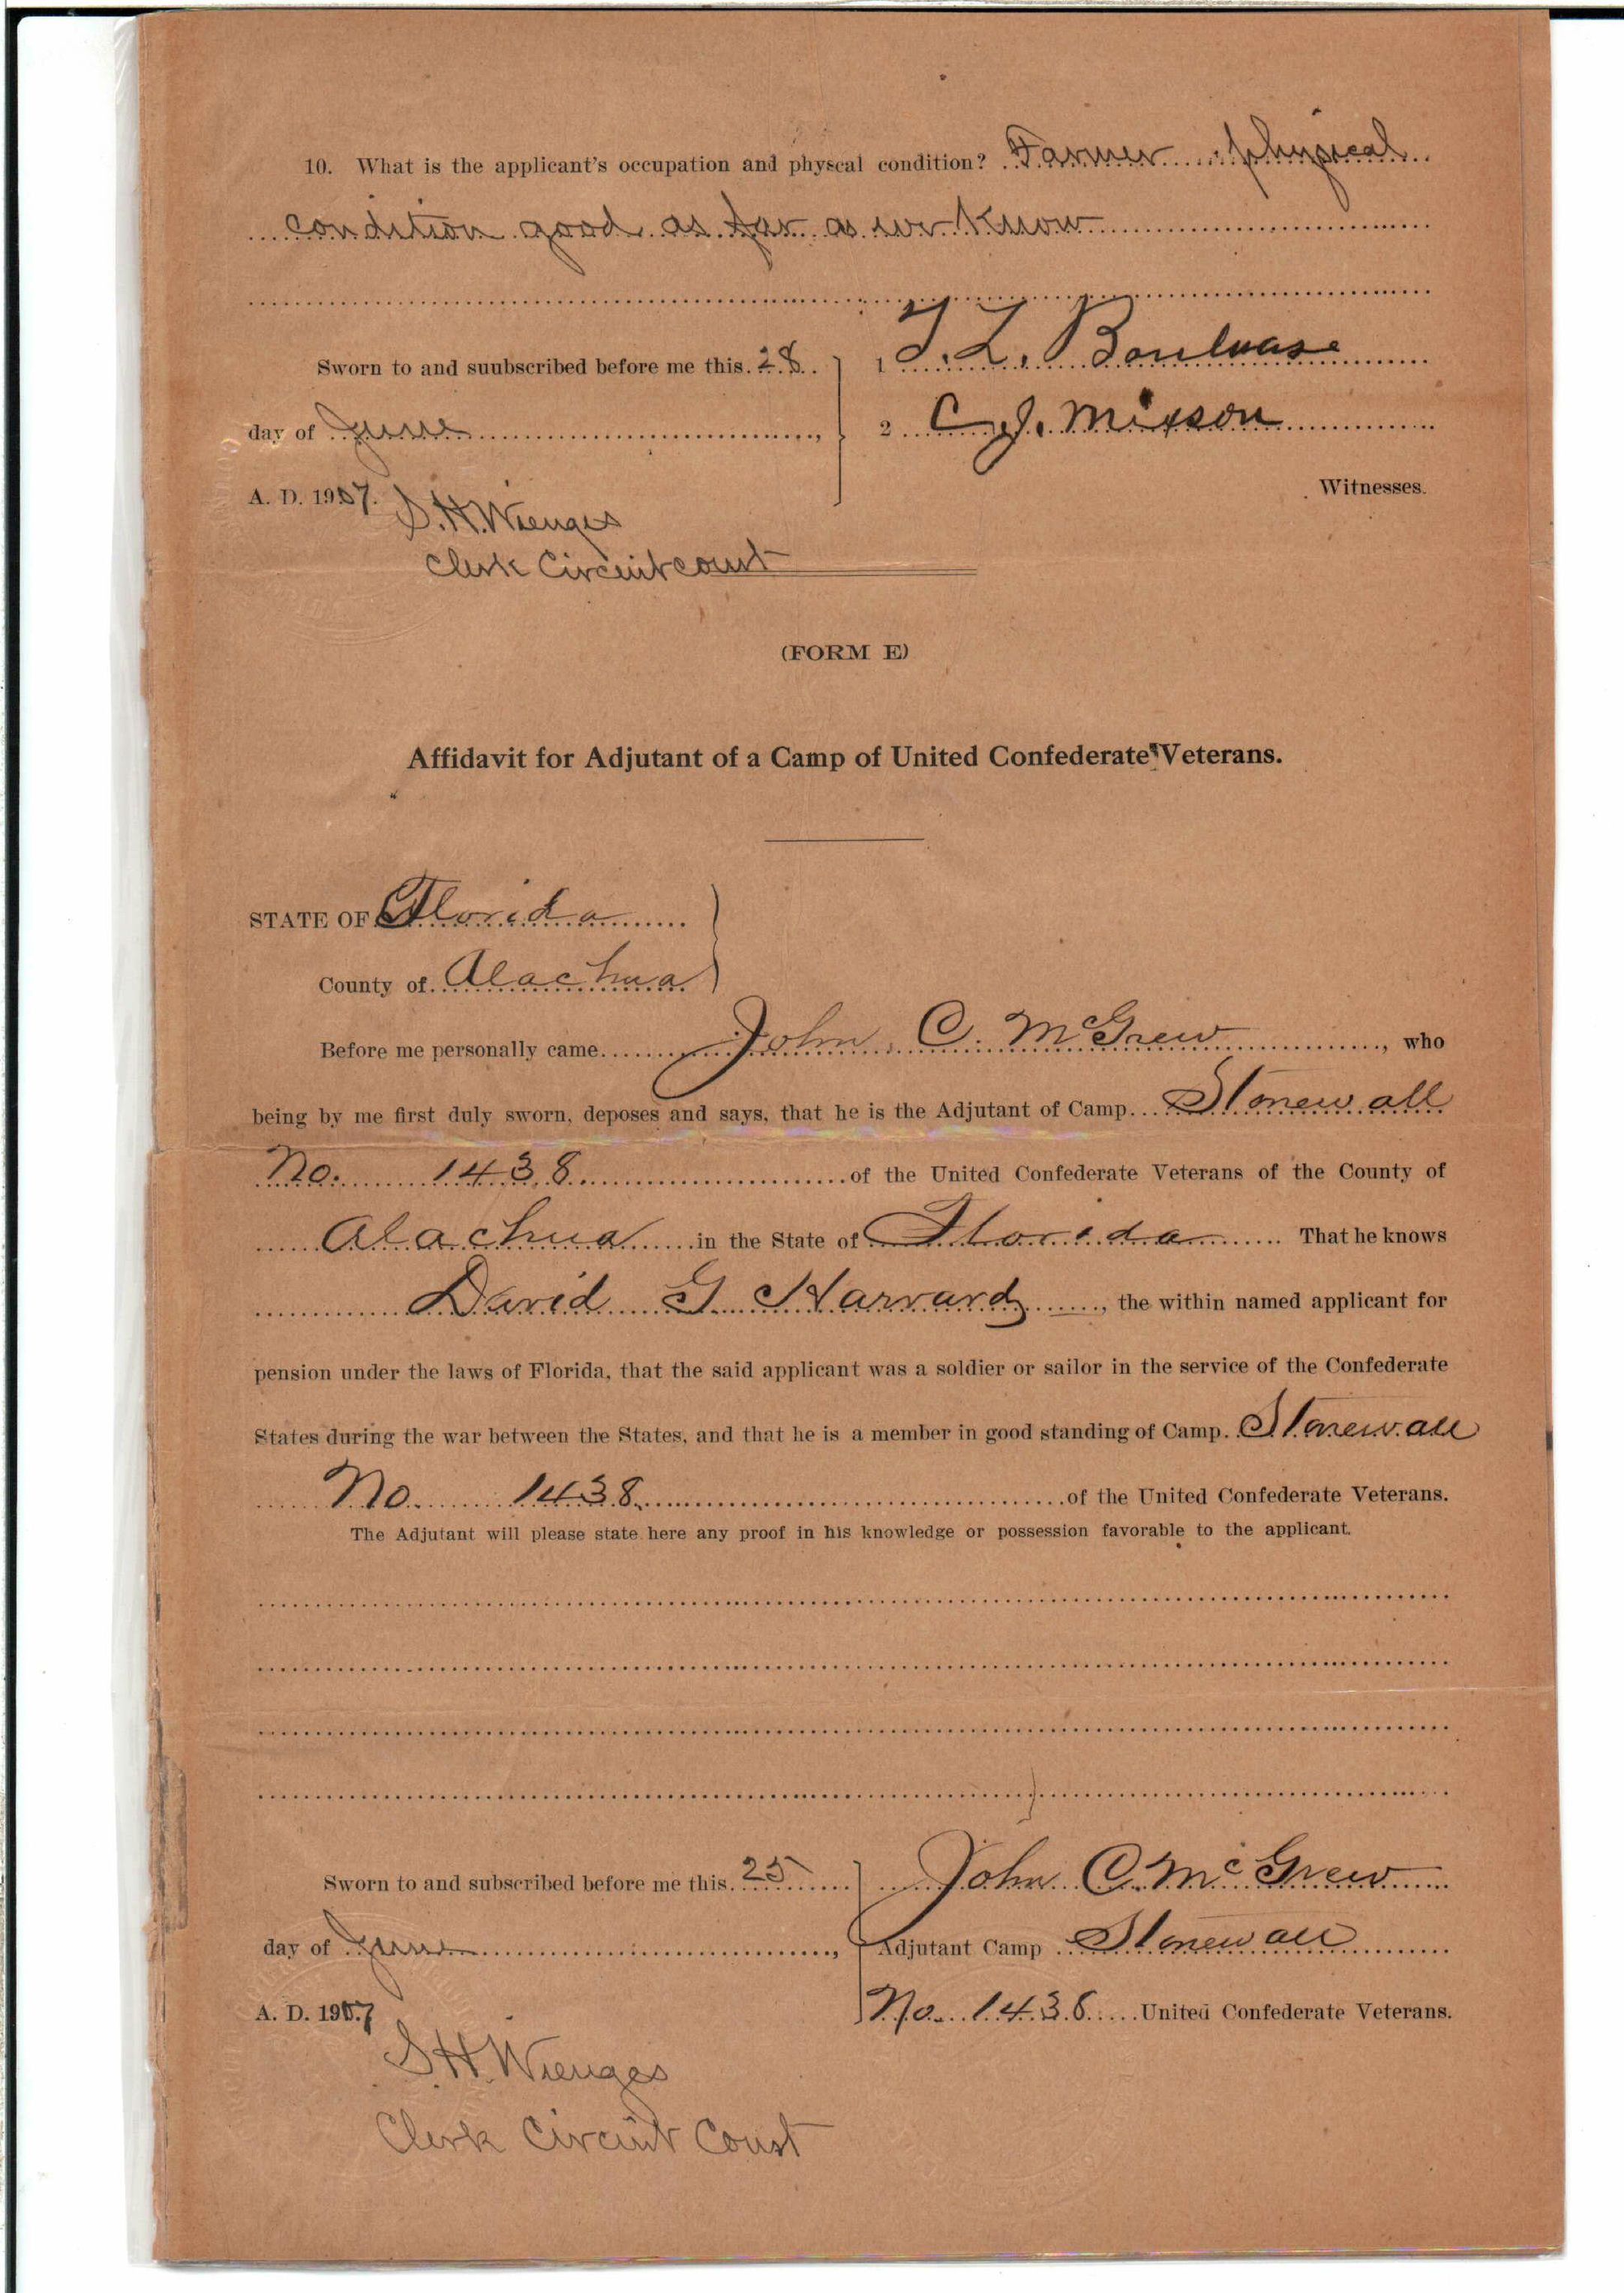 10. What is the applicant's occupation and physcal condition? Farmer physical
condition good as far as we Know
Sworn to and suubscribed before me this 28
1 T. L. Boulware
day of June,
2 C. J. Mixson
A. D. 1907.
Witnesses.
S. H. Wienges
Clerk Circuit court
(FORM E)
Affidavit for Adjutant of a Camp of United Confederate Veterans.
STATE OF Florida
County of Alachua
Before me personally came John C. McGrew, who
being by me first duly sworn, deposes and says, that he is the Adjutant of Camp Stonewall
No. 1438 of the United Confederate Veterans of the County of
Alachua in the State of Florida. That he knows
David G Harvard, the within named applicant for
pension under the laws of Florida, that the said applicant was a soldier or sailor in the service of the Confederate
States during the war between the States, and that he is a member in good standing of Camp Stonewall
No. 1438 of the United Confederate Veterans.
The Adjutant will please state here any proof in his knowledge or possession favorable to the applicant.
Sworn to and subscribed before me this 25
John C. McGrew
day of June,
Adjutant Camp Stonewall
A. D. 1907
No. 1438 United Confederate Veterans.
S. H. Wienges
Clerk Circuit Court